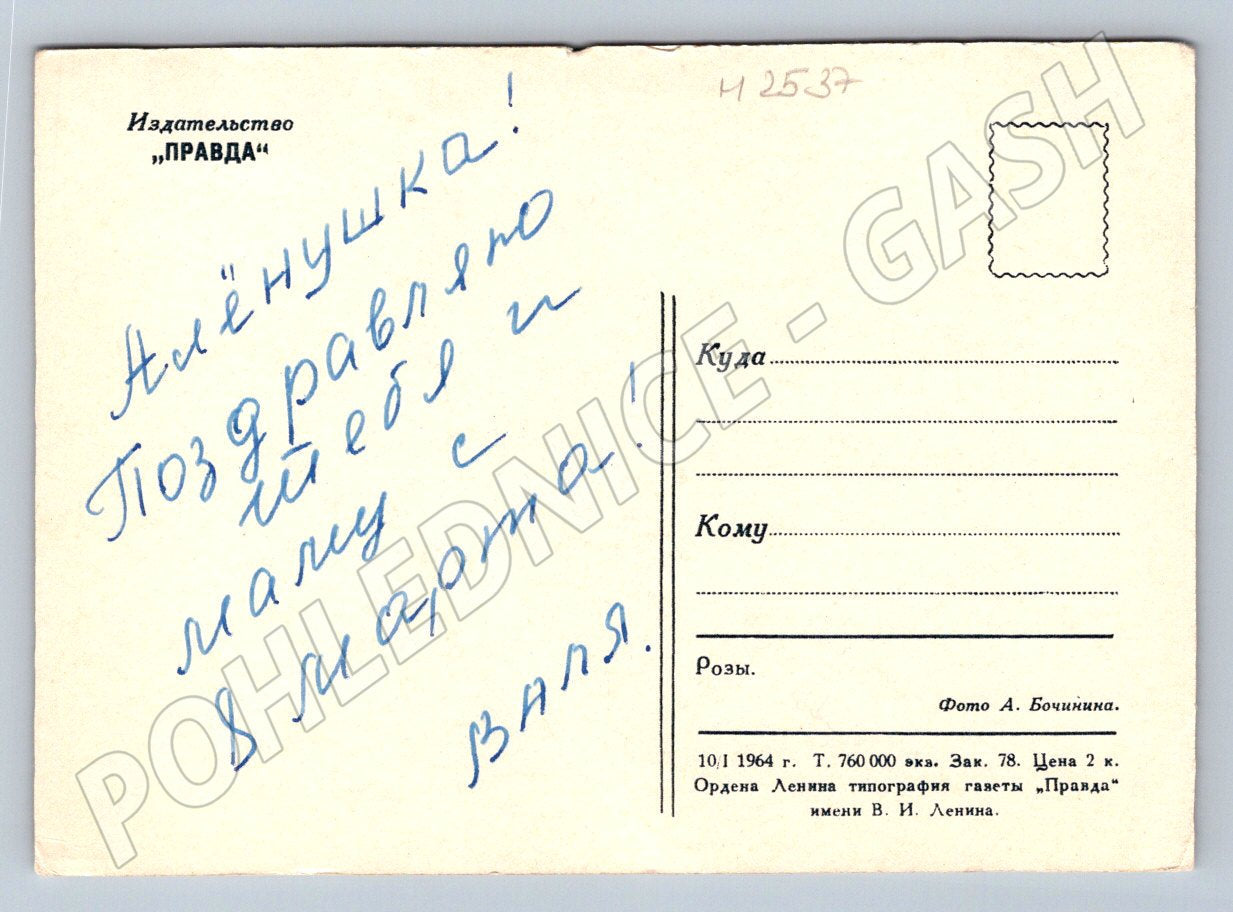 Издательство
„ПРАВДА“
Алёнушка!
Поздравляю
тебя и
маму с
8 марта!
Валя.
И 2537
Куда
Кому
Розы.
Фото А. Бочинина.
10/I 1964 г. Т. 760 000 экз. Зак. 78. Цена 2 к.
Ордена Ленина типография газеты „Правда“
имени В. И. Ленина.
POHLEDNICE - GASH